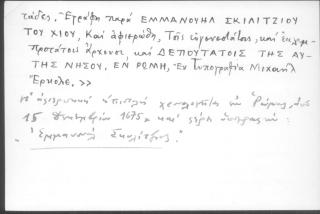 τάδες. Ἐγράφη παρὰ ΕΜΜΑΝΟΥΗΛ ΣΚΙΛΙΤΖΙΟΥ
ΤΟΥ ΧΙΟΥ, Καὶ ἀφιερώθη, Τοῖς εὐγενεστάτοις, καὶ
προτάτοις ἄρχουσι καὶ ΔΕΠΟΥΤΑΤΟΙΣ ΤΗΣ ΑΥ-
ΤΗΣ ΝΗΣΟΥ. ΕΝ ΡΩΜΗ, Ἐν Τυπογραφίᾳ Μιχαὴλ
Ἐρκολε. >>
ἀφιερωτικὴ ἐπιστολὴ χρονολογεῖται Ῥώμης,
15 Δεκεμβρίου 1675, καὶ
"Ἐμμανουὴλ Σκυλίτζης".